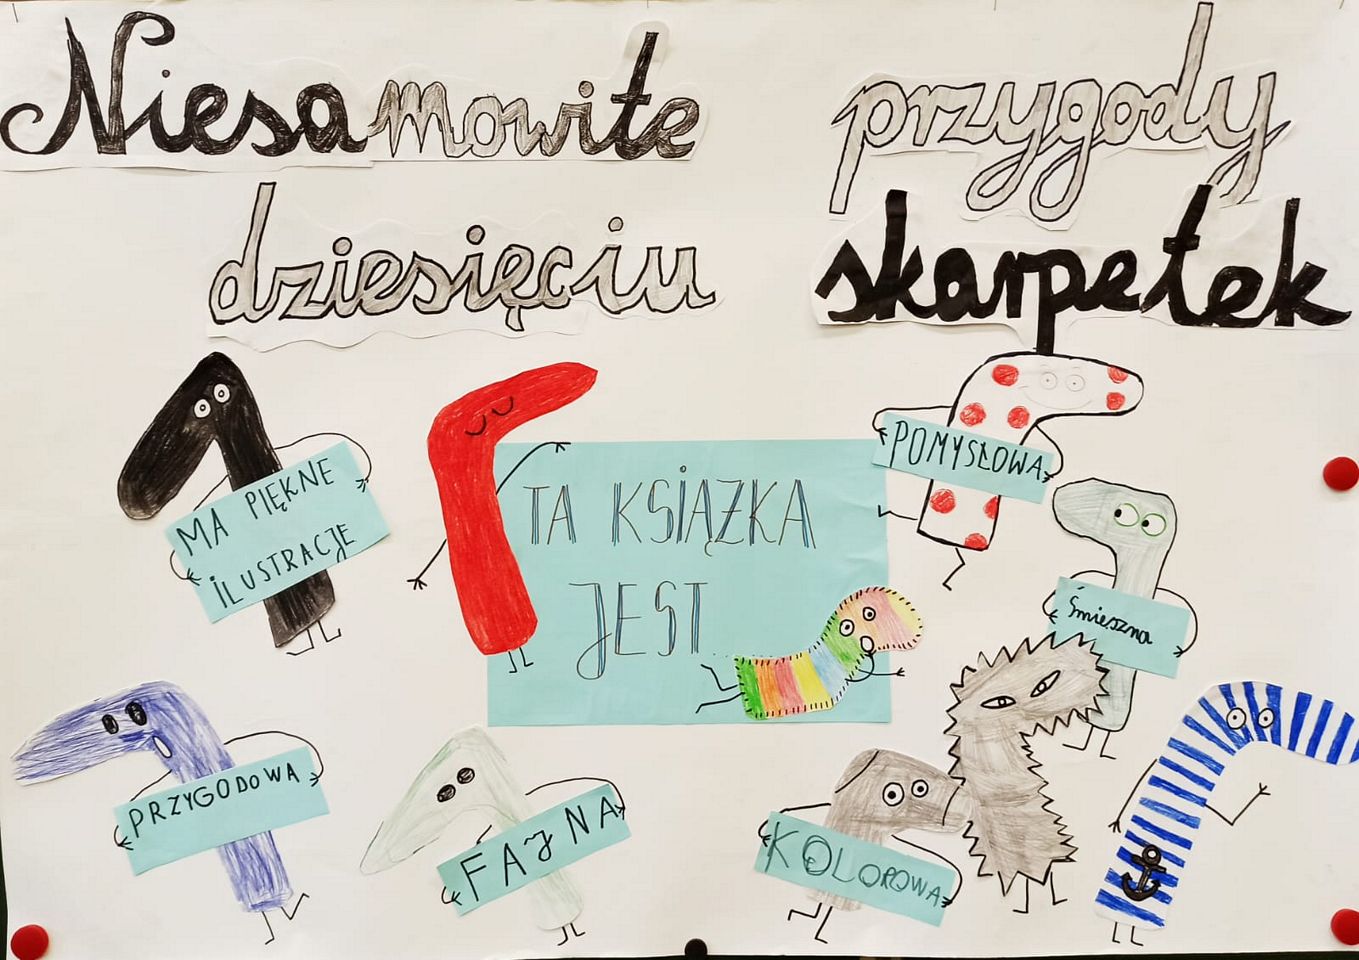 Niesamowite przygody
dziesięciu skarpetek
MA PIĘKNE
ILUSTRACJE
TA KSIĄŻKA
JEST
POMYSŁOWA
Śmieszna
PRZYGODOWA
FAJNA
KOLOROWA